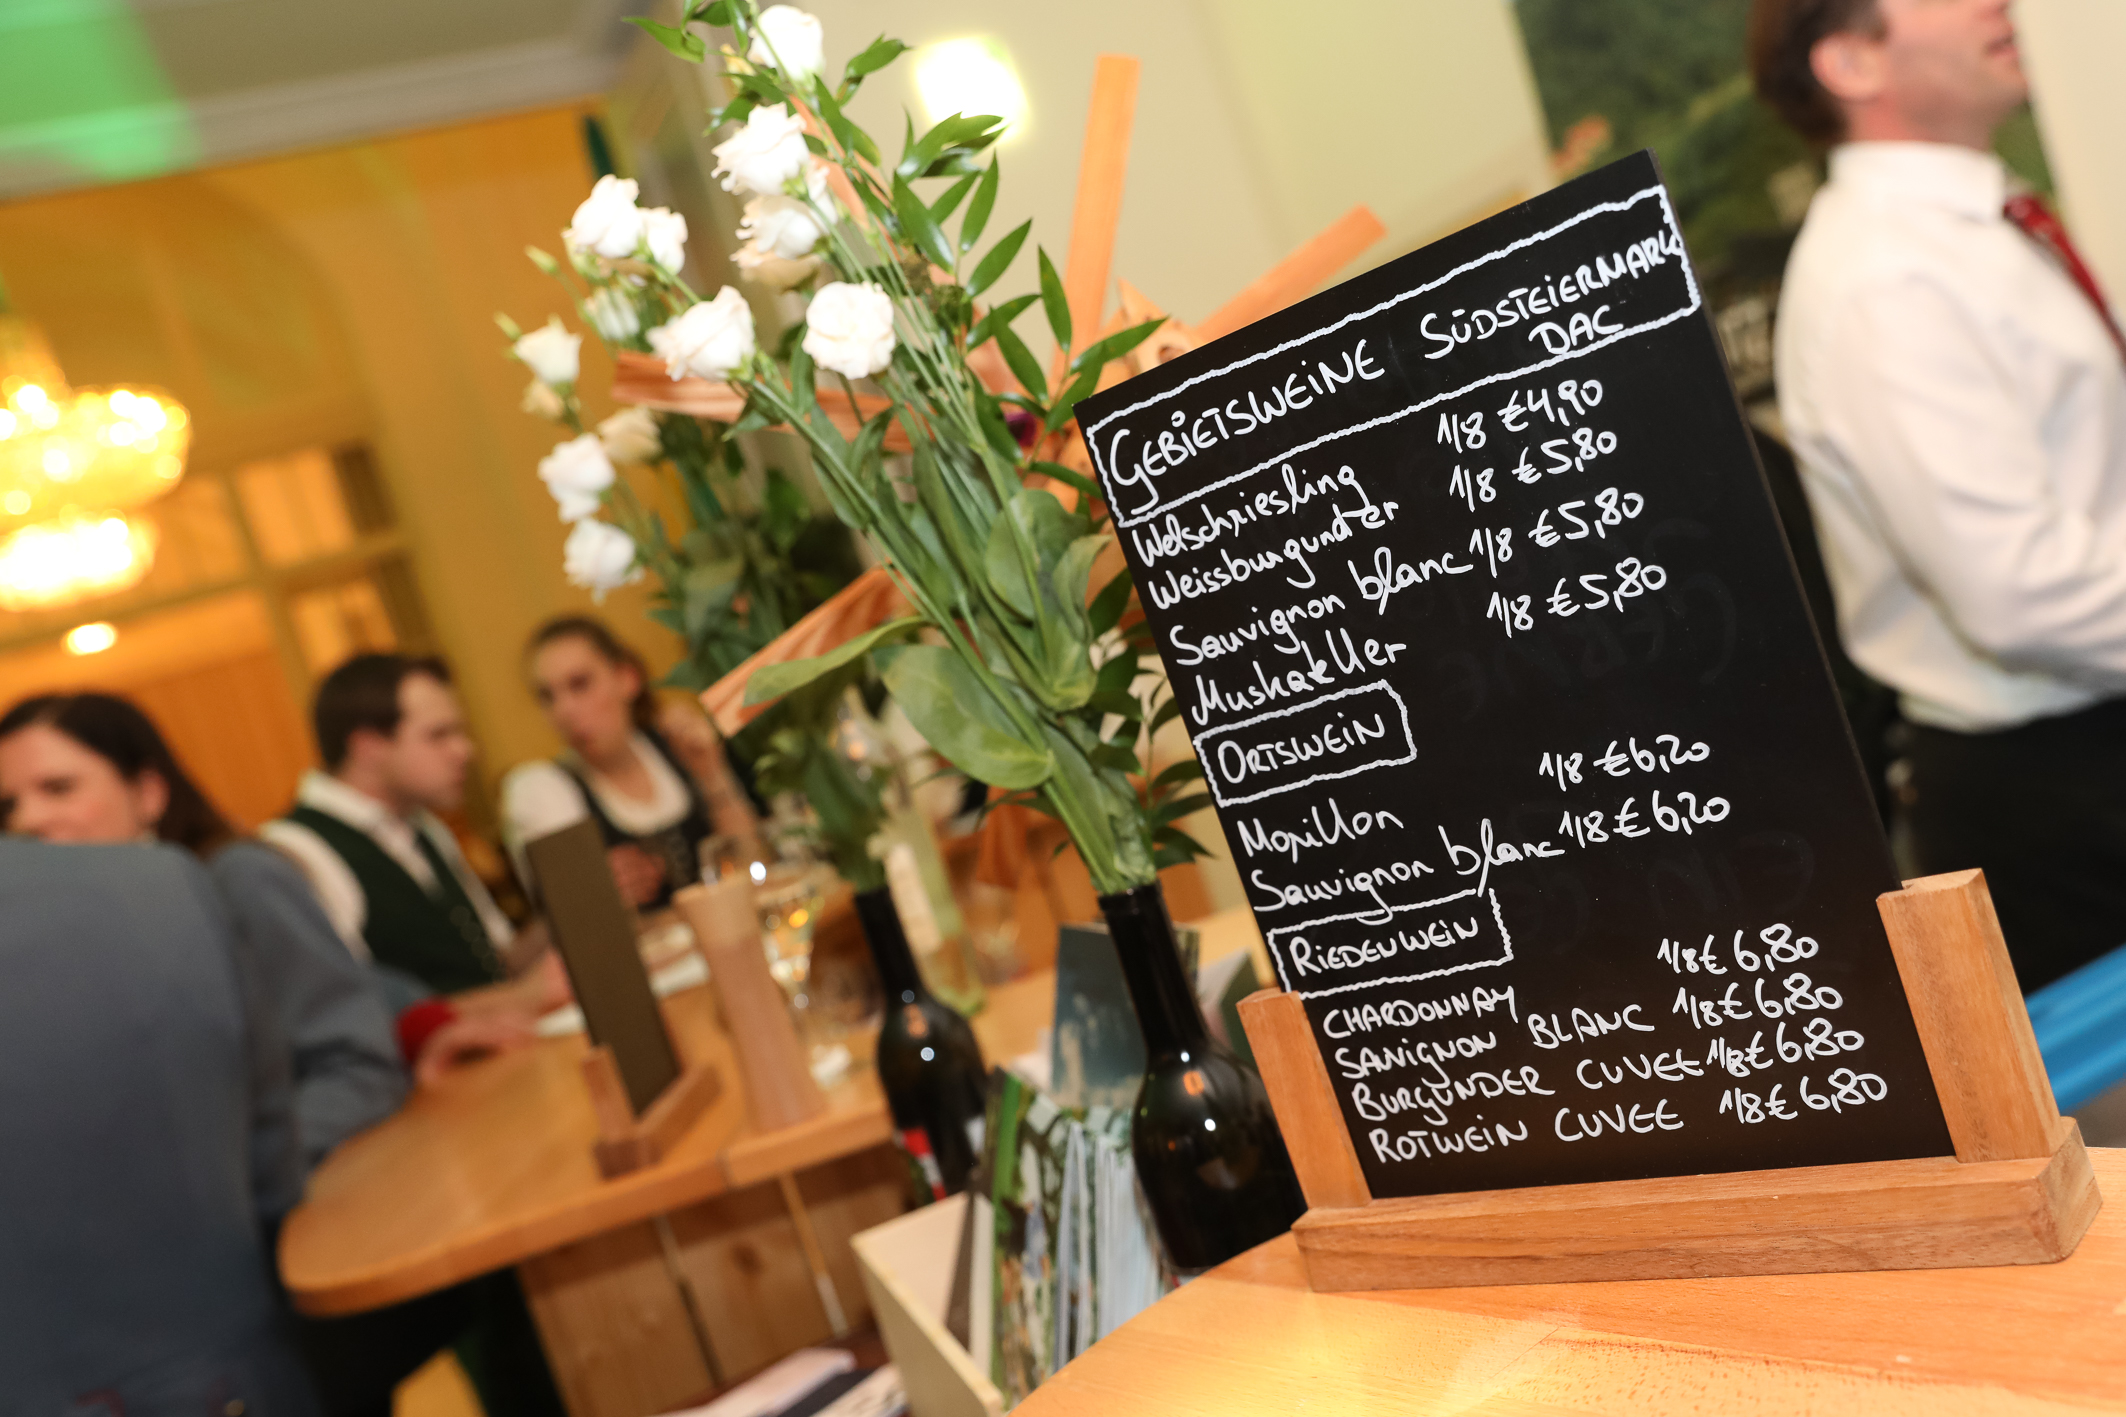 GEBIETSWEINE SÜDSTEIERMARK
DAC
Welschriesling 1/8 €4,90
Weissburgunder 1/8 €5,80
Sauvignon blanc 1/8 €5,80
Muskateller 1/8 €5,80
ORTSWEIN
Morillon 1/8 €6,20
Sauvignon blanc 1/8 €6,20
RIEDENWEIN
CHARDONNAY 1/8 € 6,80
SAUVIGNON BLANC 1/8 € 6,80
BURGUNDER CUVEE 1/8 € 6,80
ROTWEIN CUVEE 1/8 € 6,80